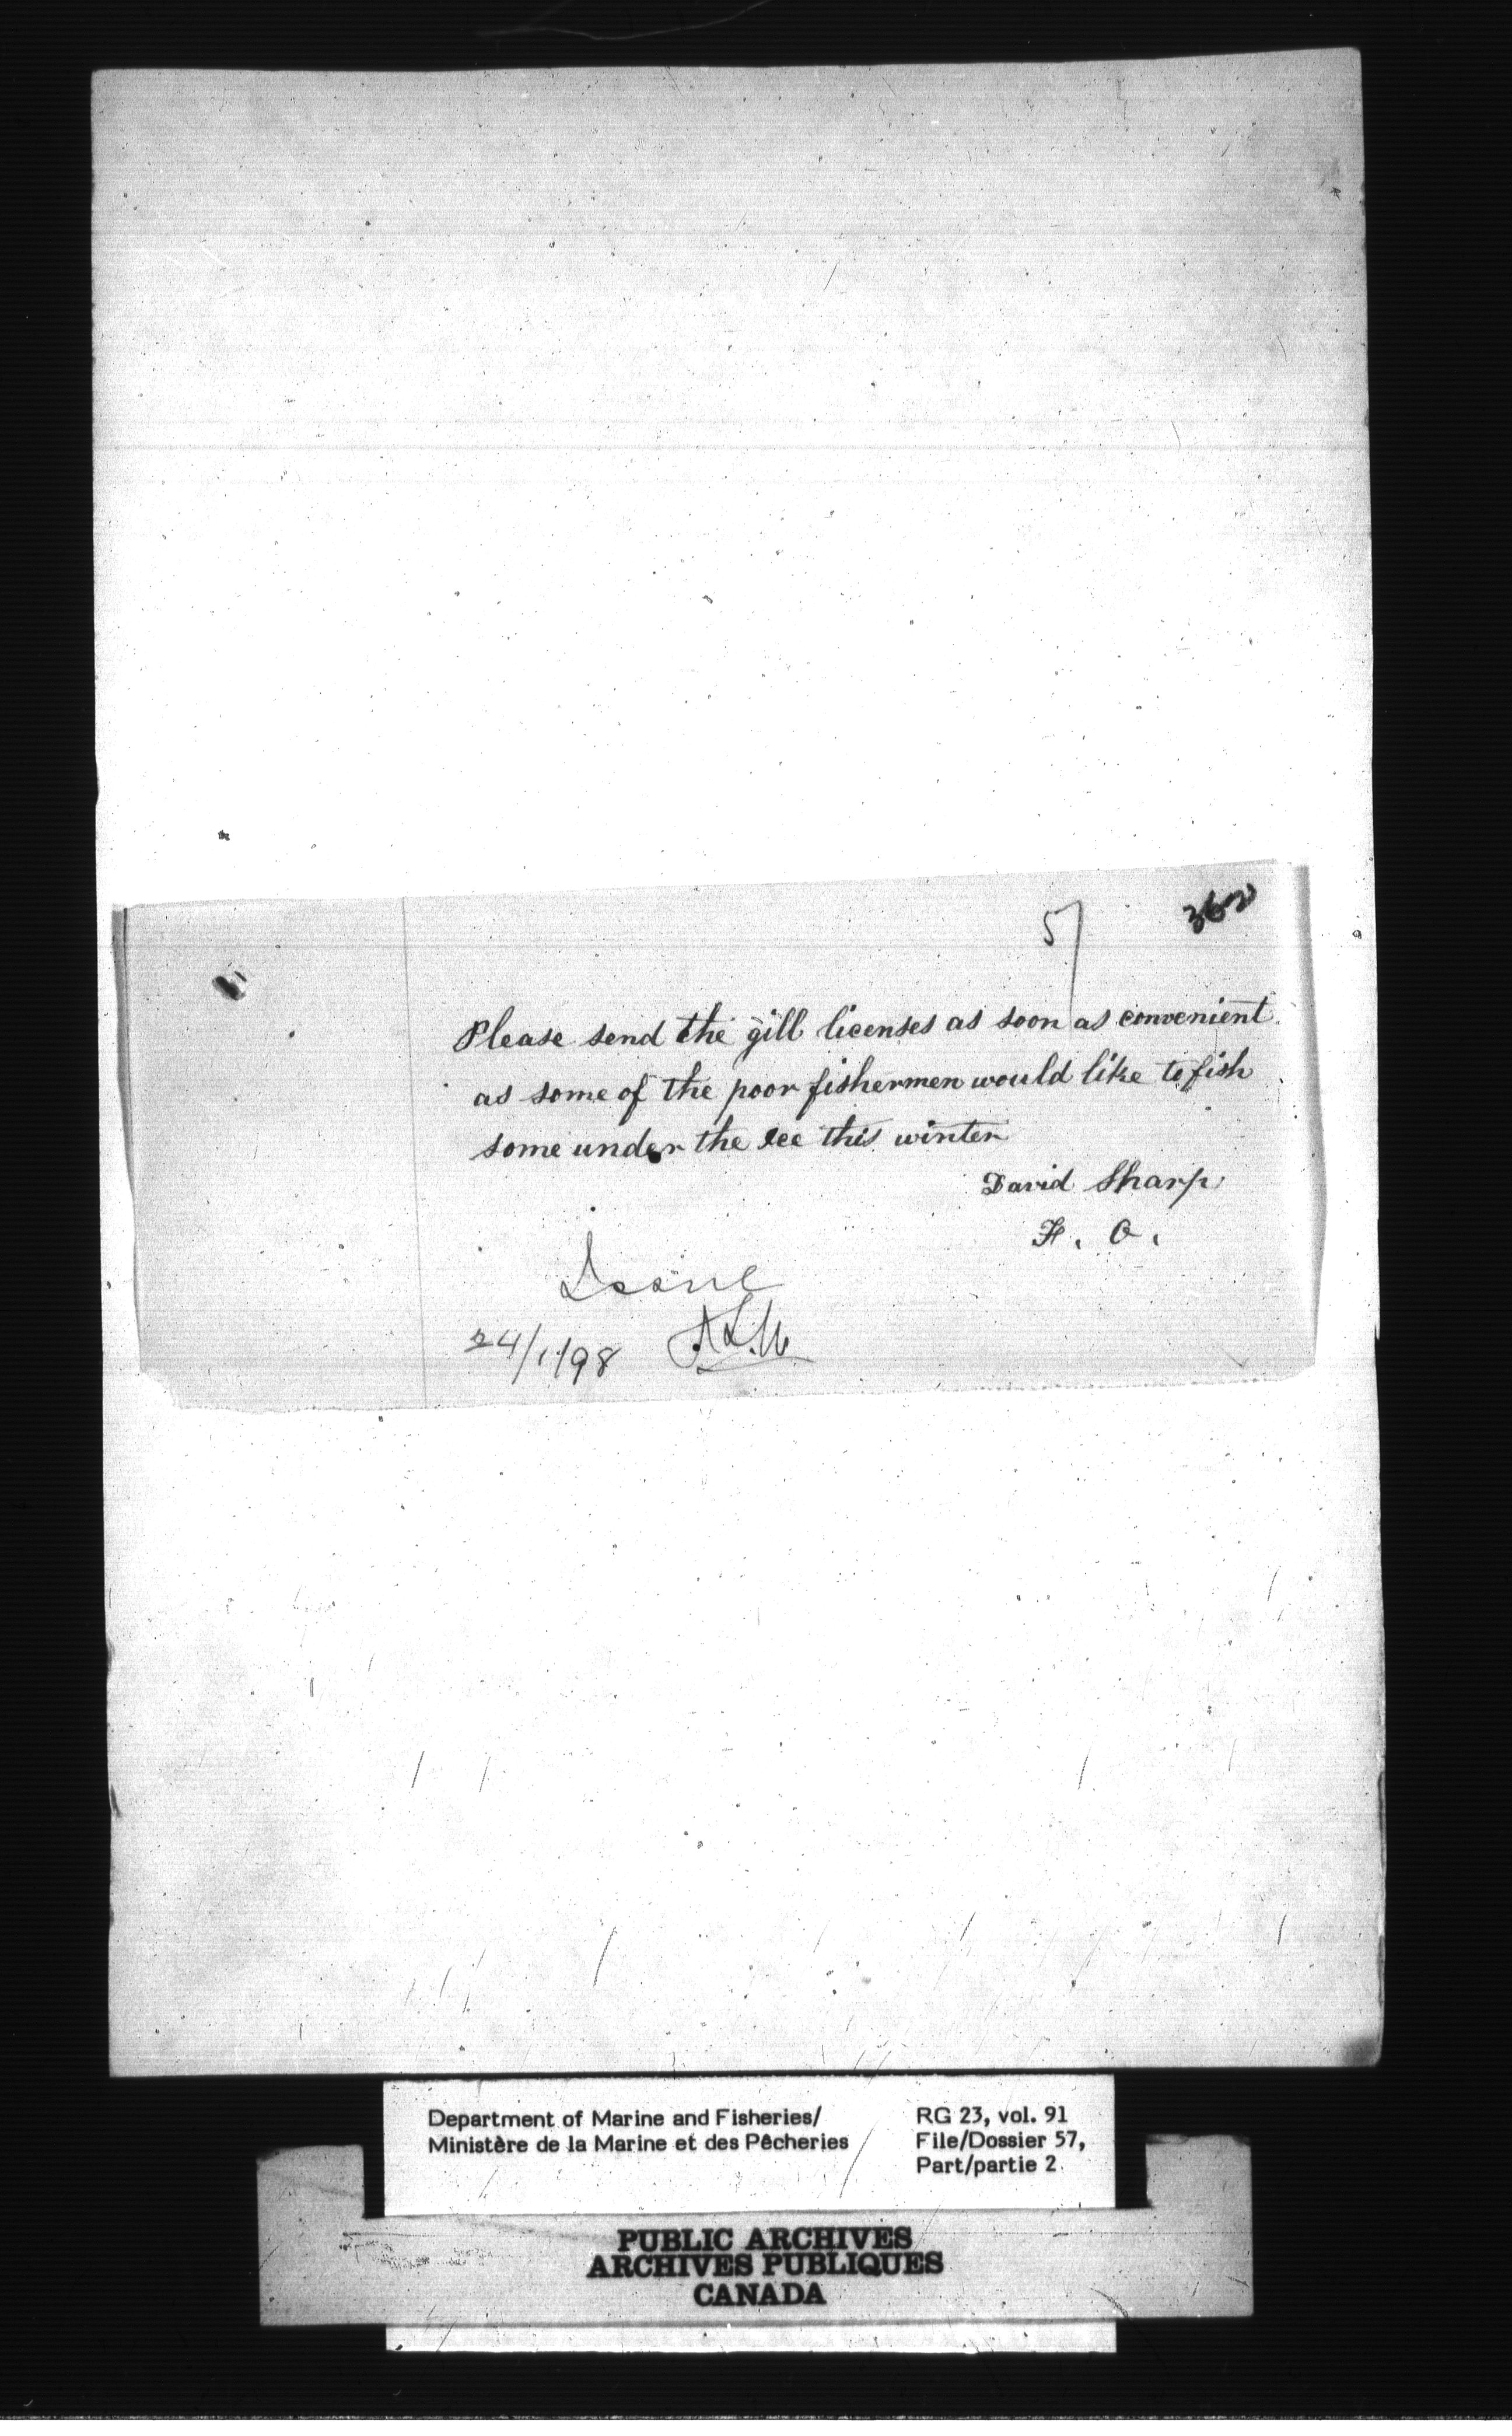 57
Please send the gill licenses as soon as convenient
as some of the poor fishermen would like to fish
some under the ice this winter
David Sharp
F. O.
24/1/98
Department of Marine and Fisheries/
Ministère de la Marine et des Pêcheries
RG 23, vol. 91
File/Dossier 57,
Part/partie 2
PUBLIC ARCHIVES
ARCHIVES PUBLIQUES
CANADA